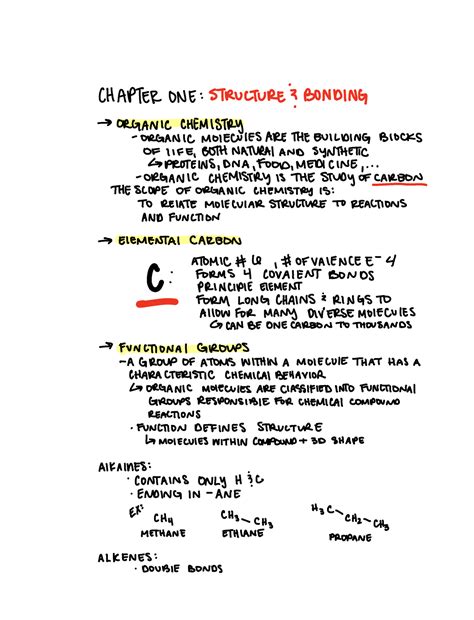 CHAPTER ONE: STRUCTURE & BONDING
→ ORGANIC CHEMISTRY
- ORGANIC MOLECULES ARE THE BUILDING BLOCKS
OF LIFE, BOTH NATURAL AND SYNTHETIC
↳ PROTEINS, DNA, FOOD, MEDICINE, ...
- ORGANIC CHEMISTRY IS THE STUDY OF CARBON
THE SCOPE OF ORGANIC CHEMISTRY IS:
TO RELATE MOLECULAR STRUCTURE TO REACTIONS
AND FUNCTION
→ ELEMENTAL CARBON
C:
ATOMIC # 6, # OF VALENCE E⁻ 4
FORMS 4 COVALENT BONDS
PRINCIPLE ELEMENT
FORM LONG CHAINS & RINGS TO
ALLOW FOR MANY DIVERSE MOLECULES
↳ CAN BE ONE CARBON TO THOUSANDS
→ FUNCTIONAL GROUPS
- A GROUP OF ATOMS WITHIN A MOLECULE THAT HAS A
CHARACTERISTIC CHEMICAL BEHAVIOR
↳ ORGANIC MOLECULES ARE CLASSIFIED INTO FUNCTIONAL
GROUPS RESPONSIBLE FOR CHEMICAL COMPOUND
REACTIONS
· FUNCTION DEFINES STRUCTURE
↳ MOLECULES WITHIN COMPOUND + 3D SHAPE
ALKANES:
· CONTAINS ONLY H & C
· ENDING IN -ANE
EX: CH₄ CH₃ CH₃ H₃C CH₂ CH₃
METHANE ETHANE PROPANE
ALKENES:
· DOUBLE BONDS